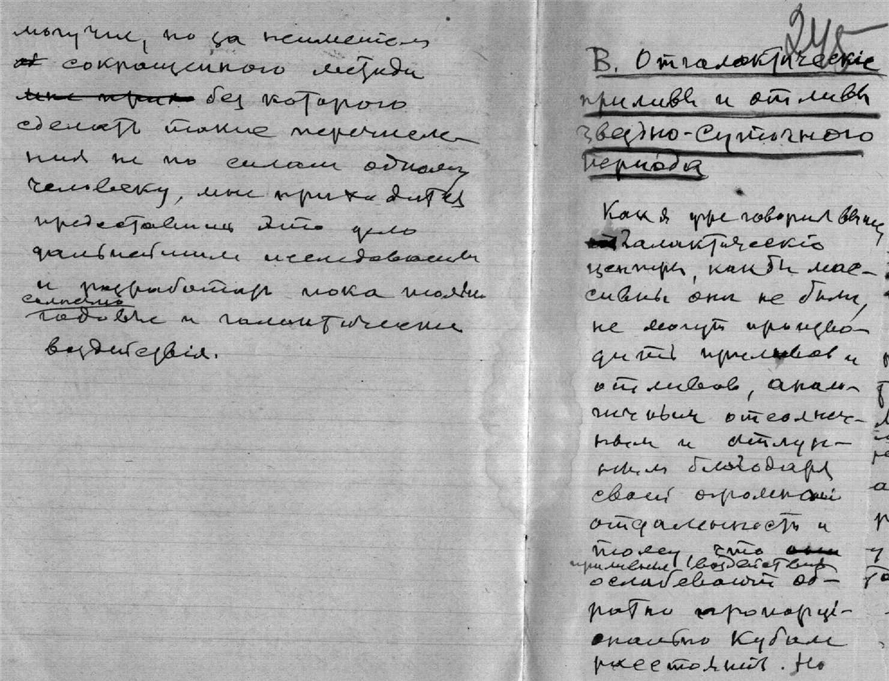 могучие, но за неименiем
сокращеннаго метода
без которого
сделать такие перечисле-
ния не по силам одному
человеку, мне приходится
предоставить это дело
дальнейшим исследователям
и разработать пока только
солнечно
годовые и галактические
воздействiя.
245
В. Отгалактическiе
приливы и отливы
звездно-суточного
периода
Как я уже говорил выше,
галактическiе
центры, как бы мас-
сивны они не были,
не могут произво-
дить приливов и
отливов, анало-
гичных отсолнеч-
ным и отлун-
ным благодаря
своей огромной
отдаленности и
тому, что
приливные воздействия
ослабевают об-
ратно пропорцi-
онально кубам
расстоянiй. Но